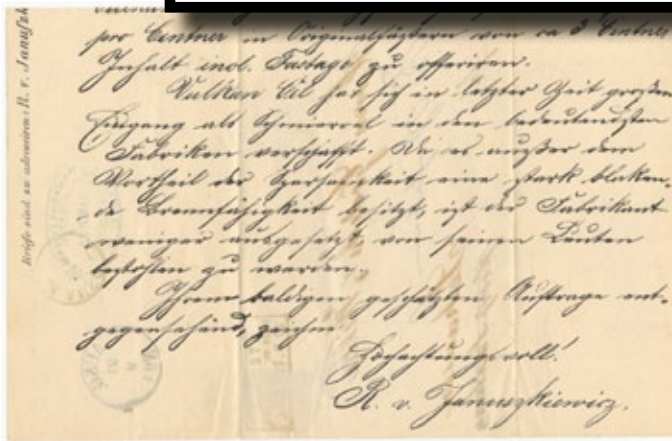 per Centner in Originalfässern von ca 3 Centner
Inhalt incl. Fastage zu offeriren.
Vulkan Oel hat sich in letzter Zeit großen
Eingang als Schmieroel in den bedeutendsten
Fabriken verschafft. Da es außer dem
Vortheil der Sparsamkeit eine stark blaken
de Brennfähigkeit besitzt, ist der Fabrikant
weniger ausgesetzt, von seinen Leuten
bestohlen zu werden.
Ihrem baldigen, geschätzten Auftrage ent-
gegensehend, zeichne
Hochachtungsvoll!
R. v. Januszkiewicz.
Briefe sind zu adressiren: R. v. Januszk